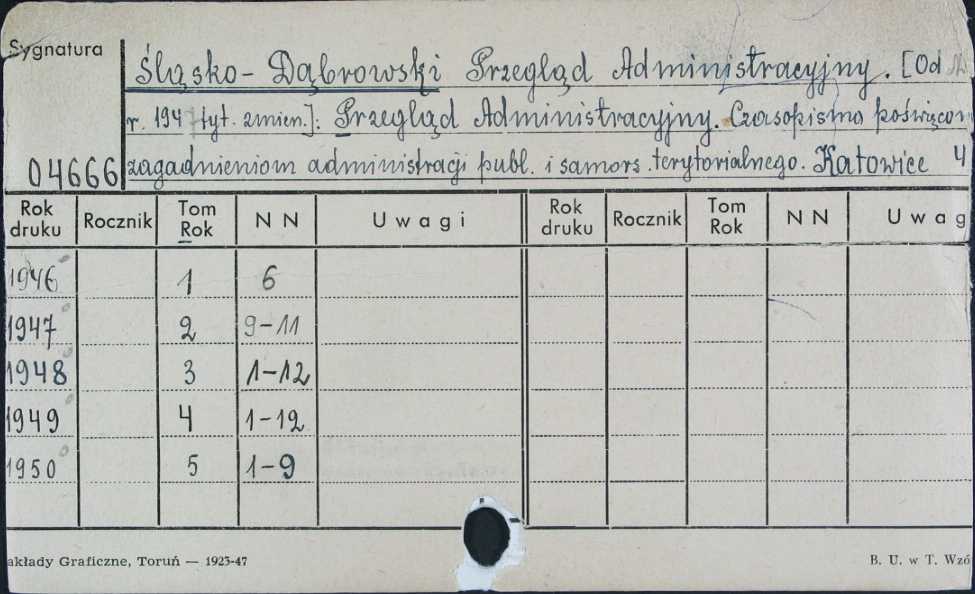 Sygnatura
Śląsko - Dąbrowski Przegląd Administracyjny. [Od
r. 194 tyt. zmien.]: Przegląd Administracyjny. Czasopismo poświęcon
04666 zagadnieniom administracji publ. i samorz. terytorialnego. Katowice 4
Rok druku Rocznik Tom Rok N N Uwagi Rok druku Rocznik Tom Rok N N Uwag
1946 1 6
1947 2 9-11
1948 3 1-12
1949 4 1-12
1950 5 1-9
akłady Graficzne, Toruń — 1923-47 B. U. w T. Wzó